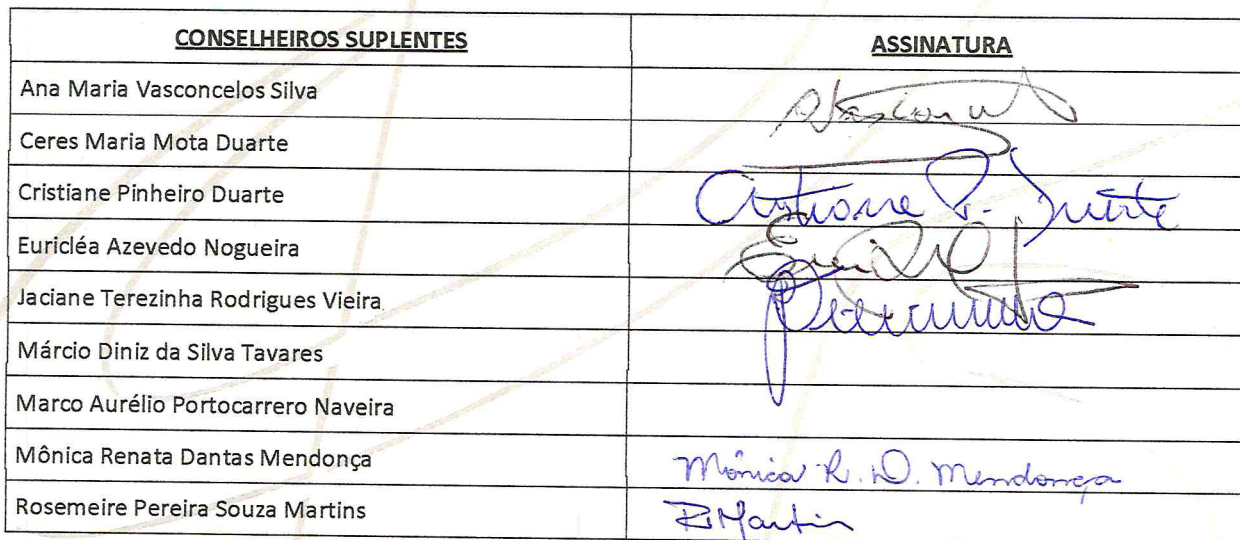 CONSELHEIROS SUPLENTES ASSINATURA
Ana Maria Vasconcelos Silva
Ceres Maria Mota Duarte
Cristiane Pinheiro Duarte Cristiane P. Duarte
Euricléa Azevedo Nogueira
Jaciane Terezinha Rodrigues Vieira
Márcio Diniz da Silva Tavares
Marco Aurélio Portocarrero Naveira
Mônica Renata Dantas Mendonça Mônica R. D. Mendonça
Rosemeire Pereira Souza Martins RMartins